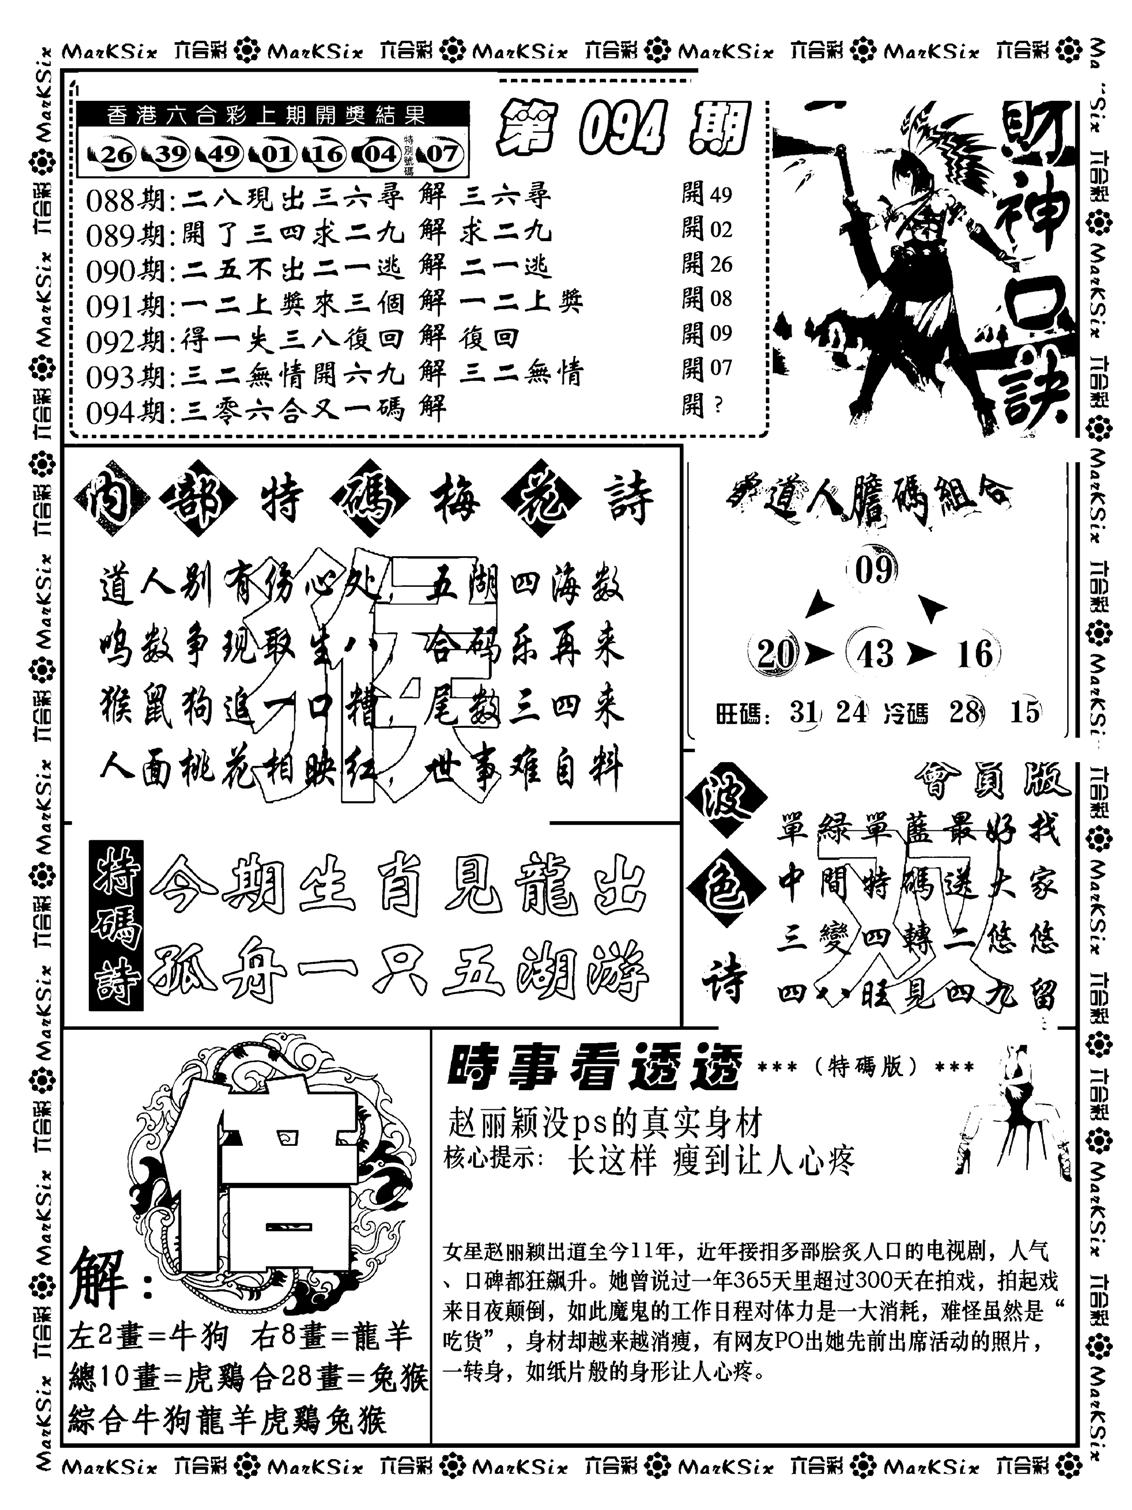 MarKSix 六合彩 MarKSix 六合彩 MarKSix 六合彩 MarKSix 六合彩 MarKSix 六合彩
香港六合彩上期開獎結果
26 39 49 01 16 04 特別號碼 07
第 094 期
財神口訣
088期:二八現出三六尋 解 三六尋 開49
089期:開了三四求二九 解 求二九 開02
090期:二五不出二一逃 解 二一逃 開26
091期:一二上獎來三個 解 一二上獎 開08
092期:得一失三八復回 解 復回 開09
093期:三二無情開六九 解 三二無情 開07
094期:三零六合又一碼 解 開?
內部特碼梅花詩
猴
道人别有伤心处，五湖四海数
鸣数争现取生八，合码乐再来
猴鼠狗追一口糟，尾数三四来
人面桃花相映红，世事难自料
道人膽碼組合
09
20 43 16
旺碼：31 24 冷碼 28 15
特碼詩
今期生肖見龍出
孤舟一只五湖游
會員版
波色诗
双
單緑單藍最好找
中間特碼送大家
三變四轉二悠悠
四八旺見四九留
信
解：
左2畫=牛狗 右8畫=龍羊
總10畫=虎鷄合28畫=兔猴
綜合牛狗龍羊虎鷄兔猴
時事看透透 ***（特碼版）***
赵丽颖没ps的真实身材
核心提示： 长这样 瘦到让人心疼
女星赵丽颖出道至今11年，近年接拍多部脍炙人口的电视剧，人气
、口碑都狂飙升。她曾说过一年365天里超过300天在拍戏，拍起戏
来日夜颠倒，如此魔鬼的工作日程对体力是一大消耗，难怪虽然是“
吃货”，身材却越来越消瘦，有网友PO出她先前出席活动的照片，
一转身，如纸片般的身形让人心疼。
MarKSix 六合彩 MarKSix 六合彩 MarKSix 六合彩 MarKSix 六合彩 MarKSix 六合彩